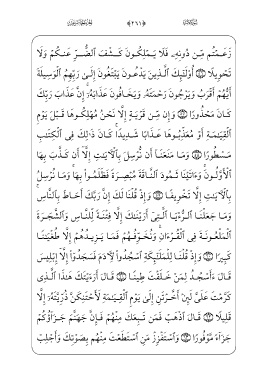 زَعَمْتُم مِّن دُونِهِۦ فَلَا يَمْلِكُونَ كَشْفَ ٱلضُّرِّ عَنكُمْ وَلَا
تَحْوِيلًا ۝ أُو۟لَـٰٓئِكَ ٱلَّذِينَ يَدْعُونَ يَبْتَغُونَ إِلَىٰ رَبِّهِمُ ٱلْوَسِيلَةَ
أَيُّهُمْ أَقْرَبُ وَيَرْجُونَ رَحْمَتَهُۥ وَيَخَافُونَ عَذَابَهُۥٓ ۚ إِنَّ عَذَابَ رَبِّكَ
كَانَ مَحْذُورًا ۝ وَإِن مِّن قَرْيَةٍ إِلَّا نَحْنُ مُهْلِكُوهَا قَبْلَ يَوْمِ
ٱلْقِيَـٰمَةِ أَوْ مُعَذِّبُوهَا عَذَابًا شَدِيدًا ۚ كَانَ ذَٰلِكَ فِى ٱلْكِتَـٰبِ
مَسْطُورًا ۝ وَمَا مَنَعَنَآ أَن نُّرْسِلَ بِٱلْـَٔايَـٰتِ إِلَّآ أَن كَذَّبَ بِهَا
ٱلْأَوَّلُونَ ۚ وَءَاتَيْنَا ثَمُودَ ٱلنَّاقَةَ مُبْصِرَةً فَظَلَمُوا۟ بِهَا ۚ وَمَا نُرْسِلُ
بِٱلْـَٔايَـٰتِ إِلَّا تَخْوِيفًا ۝ وَإِذْ قُلْنَا لَكَ إِنَّ رَبَّكَ أَحَاطَ بِٱلنَّاسِ ۚ
وَمَا جَعَلْنَا ٱلرُّءْيَا ٱلَّتِىٓ أَرَيْنَـٰكَ إِلَّا فِتْنَةً لِّلنَّاسِ وَٱلشَّجَرَةَ
ٱلْمَلْعُونَةَ فِى ٱلْقُرْءَانِ ۚ وَنُخَوِّفُهُمْ فَمَا يَزِيدُهُمْ إِلَّا طُغْيَـٰنًا
كَبِيرًا ۝ وَإِذْ قُلْنَا لِلْمَلَـٰٓئِكَةِ ٱسْجُدُوا۟ لِـَٔادَمَ فَسَجَدُوٓا۟ إِلَّآ إِبْلِيسَ
قَالَ ءَأَسْجُدُ لِمَنْ خَلَقْتَ طِينًا ۝ قَالَ أَرَءَيْتَكَ هَـٰذَا ٱلَّذِى
كَرَّمْتَ عَلَىَّ لَئِنْ أَخَّرْتَنِ إِلَىٰ يَوْمِ ٱلْقِيَـٰمَةِ لَأَحْتَنِكَنَّ ذُرِّيَّتَهُۥٓ إِلَّا
قَلِيلًا ۝ قَالَ ٱذْهَبْ فَمَن تَبِعَكَ مِنْهُمْ فَإِنَّ جَهَنَّمَ جَزَآؤُكُمْ
جَزَآءً مَّوْفُورًا ۝ وَٱسْتَفْزِزْ مَنِ ٱسْتَطَعْتَ مِنْهُم بِصَوْتِكَ وَأَجْلِبْ